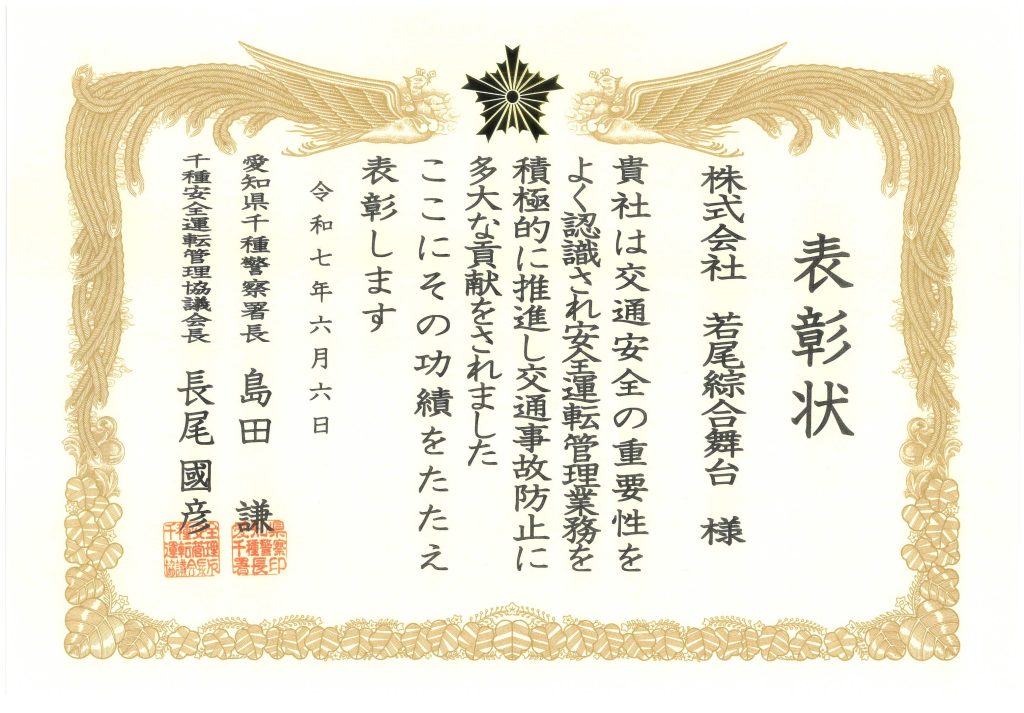 表彰状
株式会社 若尾綜合舞台 様
貴社は交通安全の重要性を
よく認識され安全運転管理業務を
積極的に推進し交通事故防止に
多大な貢献をされました
ここにその功績をたたえ
表彰します
令和七年六月六日
愛知県千種警察署長 島田 謙
千種安全運転管理協議会長 長尾 國彦